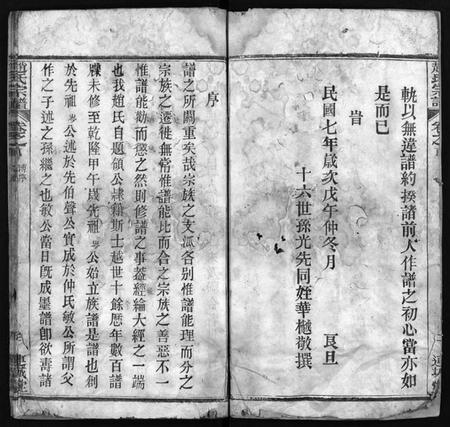 軌以無違譜約揆諸前人作譜之初心當亦如
是而已
旹
民國七年歲次戊午仲冬月　　　良旦
十六世孫光先同姪華樾敬撰
序
譜之所關重矣哉宗族之支派各別惟譜能理而分之
宗族之遷徙無常惟譜能比而合之宗族之善惡不一
惟譜能勸而懲之然則修譜之事蓋經綸大經之一端
也我趙氏自題領公隸籍斯土越世十餘歷年數百譜
牒未修至乾隆甲午歲先祖 公始立族譜是譜也創
於先祖 公述於先伯聲公實成於仲氏敏公所謂父
作之子述之孫繼之也敏公當日既成墨譜卽欲壽諸
趙氏宗譜
卷之首